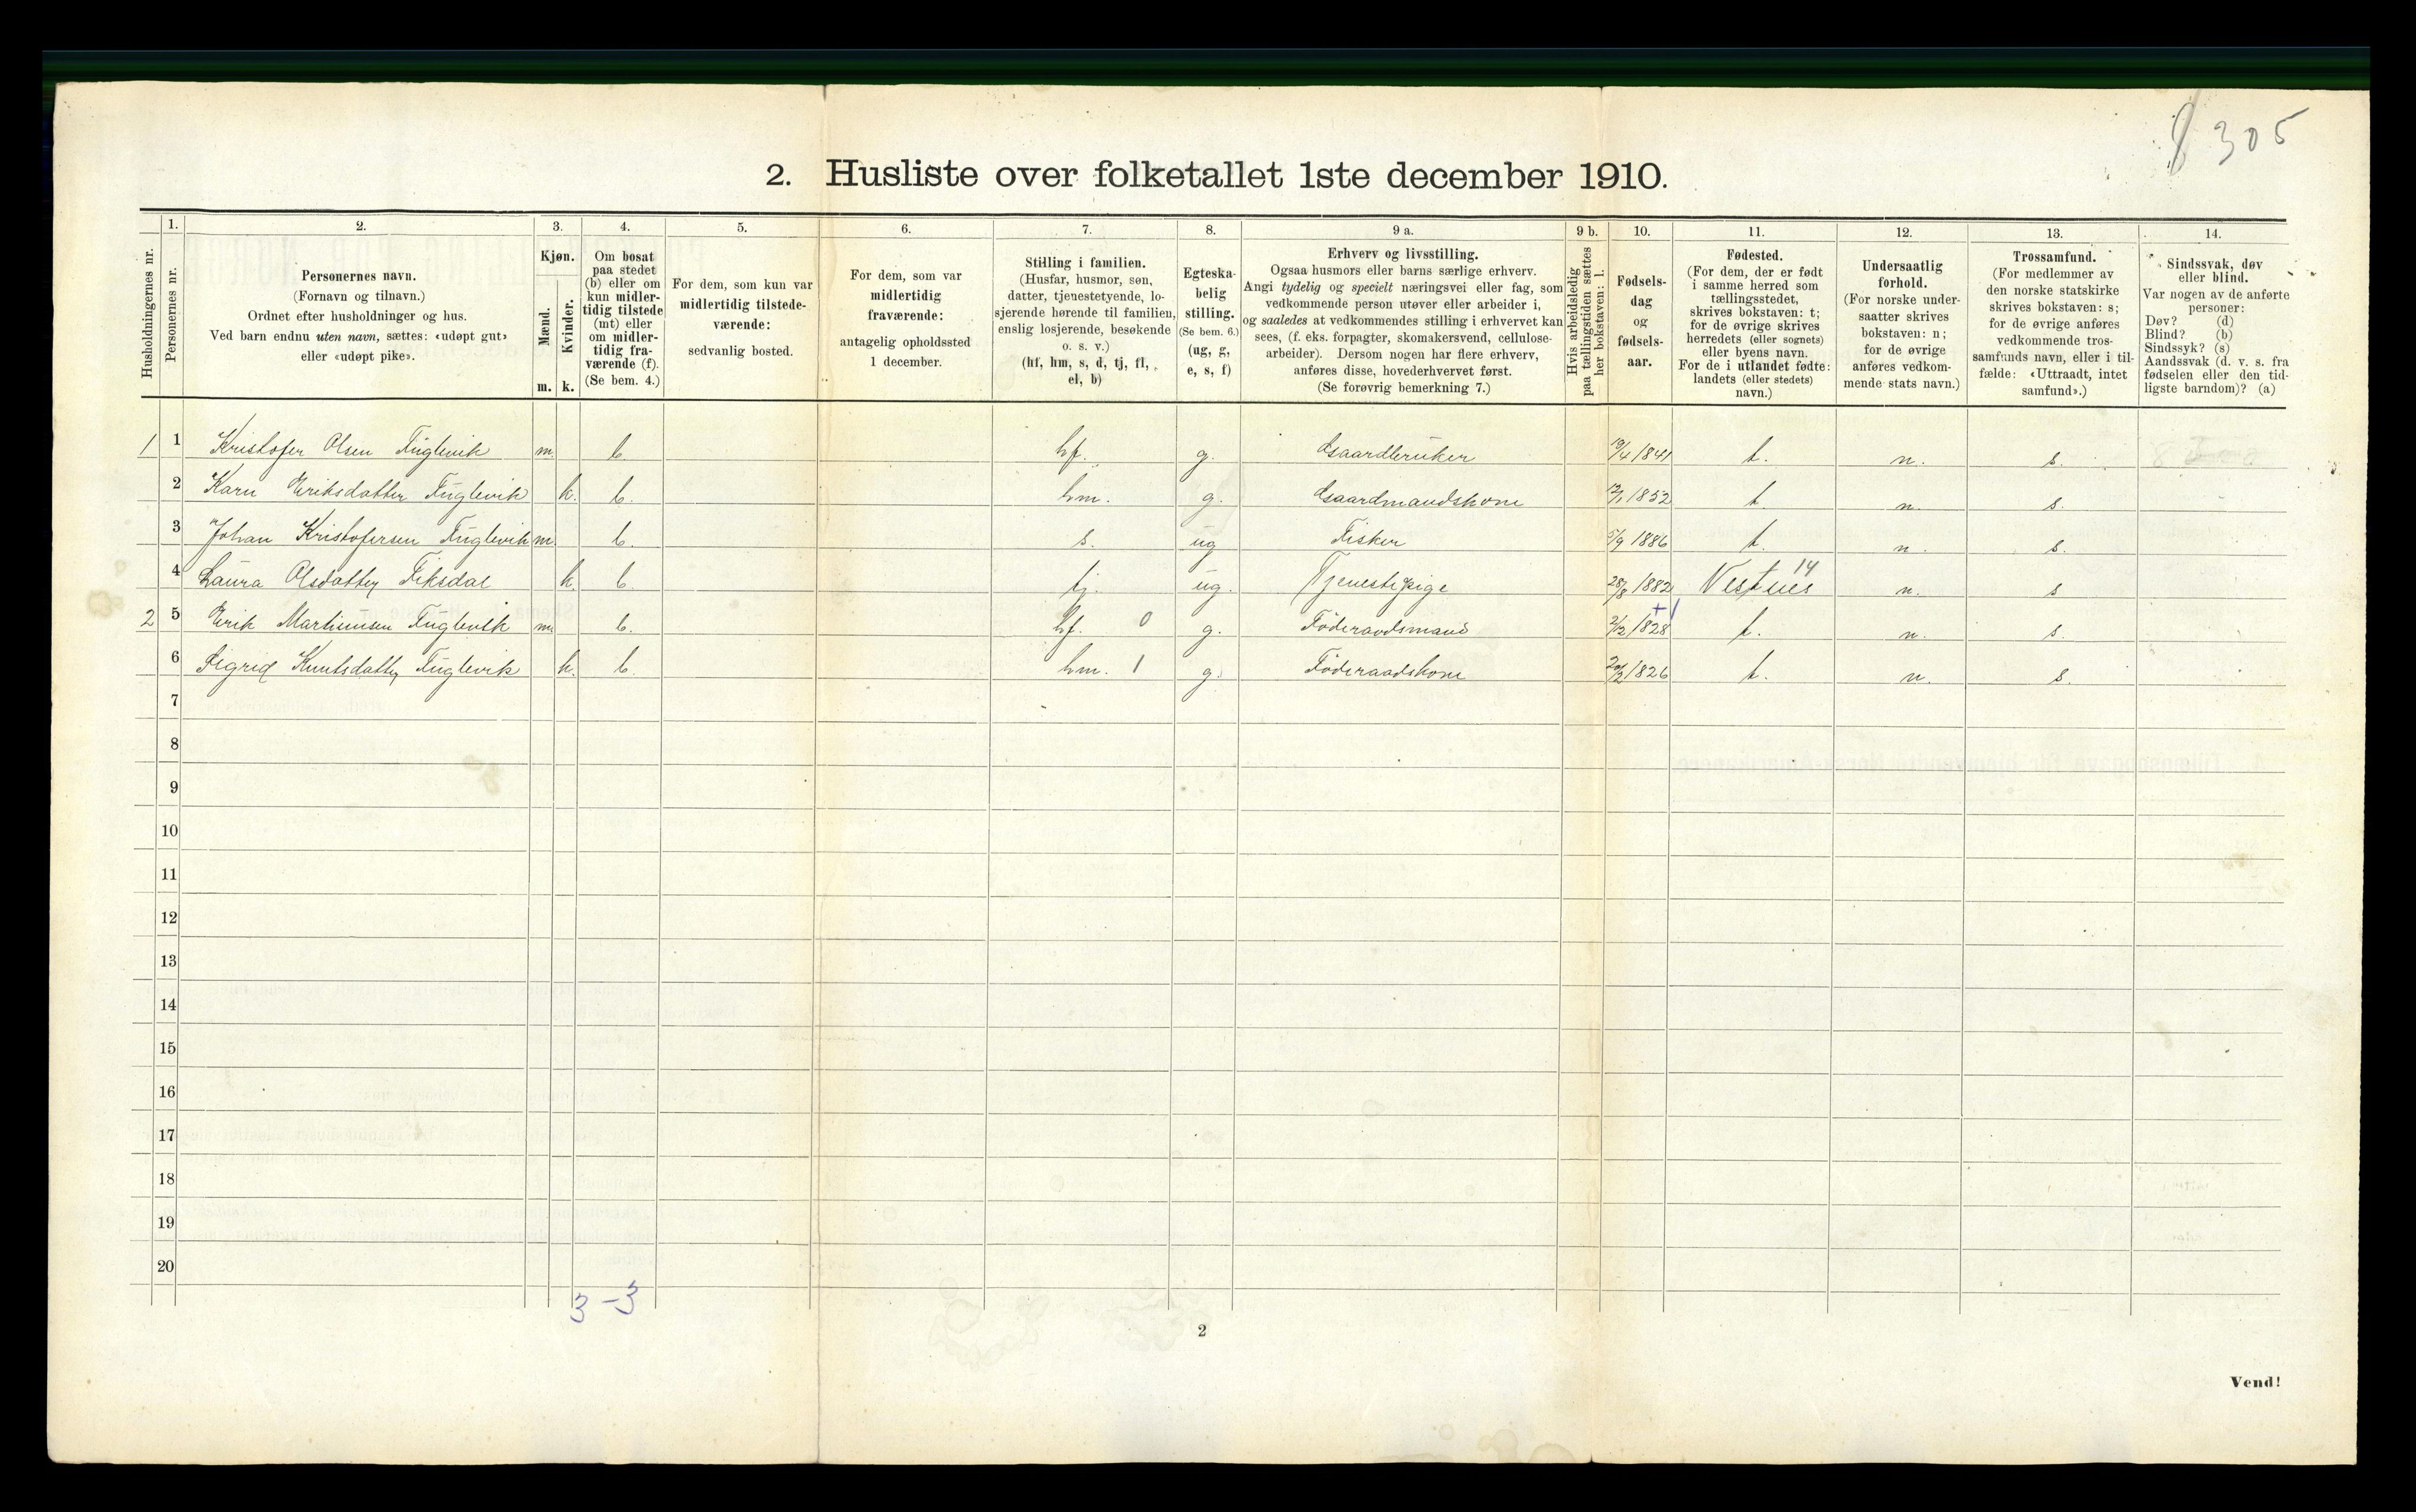 305
2. Husliste over folketallet 1ste december 1910.
Husholdningernes nr.
1. Personernes nr.
2. Personernes navn.
(Fornavn og tilnavn.)
Ordnet efter husholdninger og hus.
Ved barn endnu uten navn, sættes: «udøpt gut»
eller «udøpt pike».
3. Kjøn.
Mænd. m.
Kvinder. k.
4. Om bosat
paa stedet
(b) eller om
kun midler-
tidig tilstede
(mt) eller
om midler-
tidig fra-
værende (f).
(Se bem. 4.)
5. For dem, som kun var
midlertidig tilstede-
værende:
sedvanlig bosted.
6. For dem, som var
midlertidig
fraværende:
antagelig opholdssted
1 december.
7. Stilling i familien.
(Husfar, husmor, søn,
datter, tjenestetyende, lo-
sjerende hørende til familien,
enslig losjerende, besøkende
o. s. v.)
(hf, hm, s, d, tj, fl,
el, b)
8. Egteska-
belig
stilling.
(Se bem. 6.)
(ug, g,
e, s, f)
9 a. Erhverv og livsstilling.
Ogsaa husmors eller barns særlige erhverv.
Angi tydelig og specielt næringsvei eller fag, som
vedkommende person utøver eller arbeider i,
og saaledes at vedkommendes stilling i erhvervet kan
sees, (f. eks. forpagter, skomakersvend, cellulose-
arbeider). Dersom nogen har flere erhverv,
anføres disse, hovederhvervet først.
(Se forøvrig bemerkning 7.)
9 b. Hvis arbeidsledig
paa tællingstiden sættes
her bokstaven: l.
10. Fødsels-
dag
og
fødsels-
aar.
11. Fødested.
(For dem, der er født
i samme herred som
tællingsstedet,
skrives bokstaven: t;
for de øvrige skrives
herredets (eller sognets)
eller byens navn.
For de i utlandet fødte:
landets (eller stedets)
navn.)
12. Undersaatlig
forhold.
(For norske under-
saatter skrives
bokstaven: n;
for de øvrige
anføres vedkom-
mende stats navn.)
13. Trossamfund.
(For medlemmer av
den norske statskirke
skrives bokstaven: s;
for de øvrige anføres
vedkommende tros-
samfunds navn, eller i til-
fælde: «Uttraadt, intet
samfund».)
14. Sindssvak, døv
eller blind.
Var nogen av de anførte
personer:
Døv? (d)
Blind? (b)
Sindssyk? (s)
Aandssvak (d. v. s. fra
fødselen eller den tid-
ligste barndom)? (a)
1 1 Kristofer Olsen Fuglevik m. b. hf. g. Gaardbruker 19/4 1841 t. n. s.
2 Karn Eriksdatter Fuglevik k. b. hm. g. Gaardmandskone 1852 t. n. s.
3 Johan Kristofersen Fuglevik m. b. s. ug Fisker 5/9 1886 t. n. s.
4 Laura Olsdatter Fiksdal k. b. tj. ug. Tjenestepige 28/8 1882 Vestnes 14 n. s
2 5 Erik Martinusen Fuglevik m. b. hf. 0 g. Föderaadsmand 2/12 1828 t. n. s.
6 Sigrid Knutsdatter Fuglevik k. b. hm. 1 g. Föderaadskone 1826 t. n. s.
7
8
9
10
11
12
13
14
15
16
17
18
19
20
3 - 3
2
Vend!